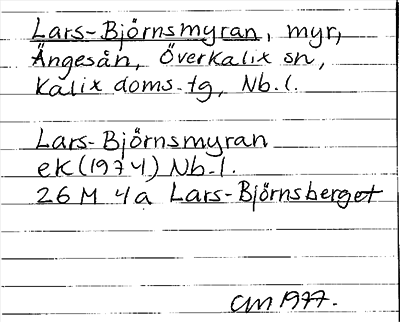 Lars-Björnsmyran, myr,
Ängesån, Överkalix sn,
Kalix doms.tg, Nb.l.
Lars-Björnsmyran
ek (1974) Nb.l.
26 M 4a Lars-Björnsberget
CM 1977.